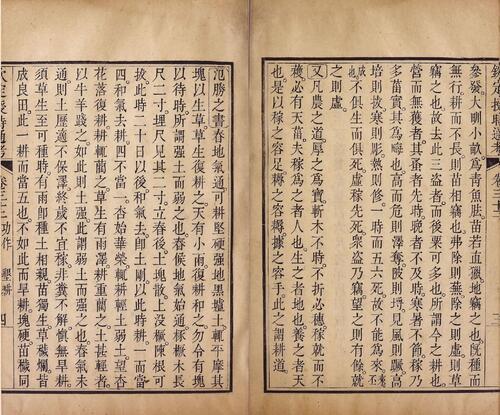 欽定授時通考 卷三十二
參發。大甽小畝。為青魚胠。苗若直獵。地竊之也。旣種而
無行。耕而不長。則苗相竊也。弗除則蕪。除之則虛。則草
竊之也。故去此三盜者。而後粟可多也。所謂今之耕也。
營而無獲者。其蚤者先時。晚者不及時。寒暑不節。稼乃
多菑實。其為畮也。高而危則澤奪。陂則埒。見風則蹶。高
培則拔。寒則彫。熱則修。一時而五六死。故不能為來。丕
成也。不俱生而俱死。虛稼先死。衆盜乃竊。望之似有餘。就
之則虛。
又凡農之道。厚之為寶。斬木不時。不折必穗。稼就而不
穫。必有天菑。夫稼為之者人也。生之者地也。養之者天
也。是以稼之容足。耨之容耰。據之容手。此之謂耕道。
氾勝之書。春地氣通。可耕堅硬強地黑壚土。輒平摩其
塊以生草。草生復耕之。天有小雨。復耕和之。勿令有塊
以待時。所謂強土而弱之也。春候地氣始通。椓橛木長
尺二寸。埋尺見其二寸。立春後。土塊散。上沒橛。陳根可
拔。此時二十日以後。和氣去。卽土剛。以此時耕。一而當
四。和氣去耕。四不當一。杏始華榮。輒耕輕土弱土。望杏
花落復耕。耕輒藺之。草生有雨澤。耕重藺之。土甚輕者
以牛羊踐之。如此則土強。此謂弱土而強之也。春氣未
通。則土歷適不保澤。終歲不宜稼。非糞不解。慎無旱耕。
須草生。至可種時。有雨卽種。土相親。苗獨生。草穢爛。皆
成良田。此一耕而當五也。不如此而旱耕。塊硬。苗穢同
欽定授時通考 卷三十二 功作 墾耕 四